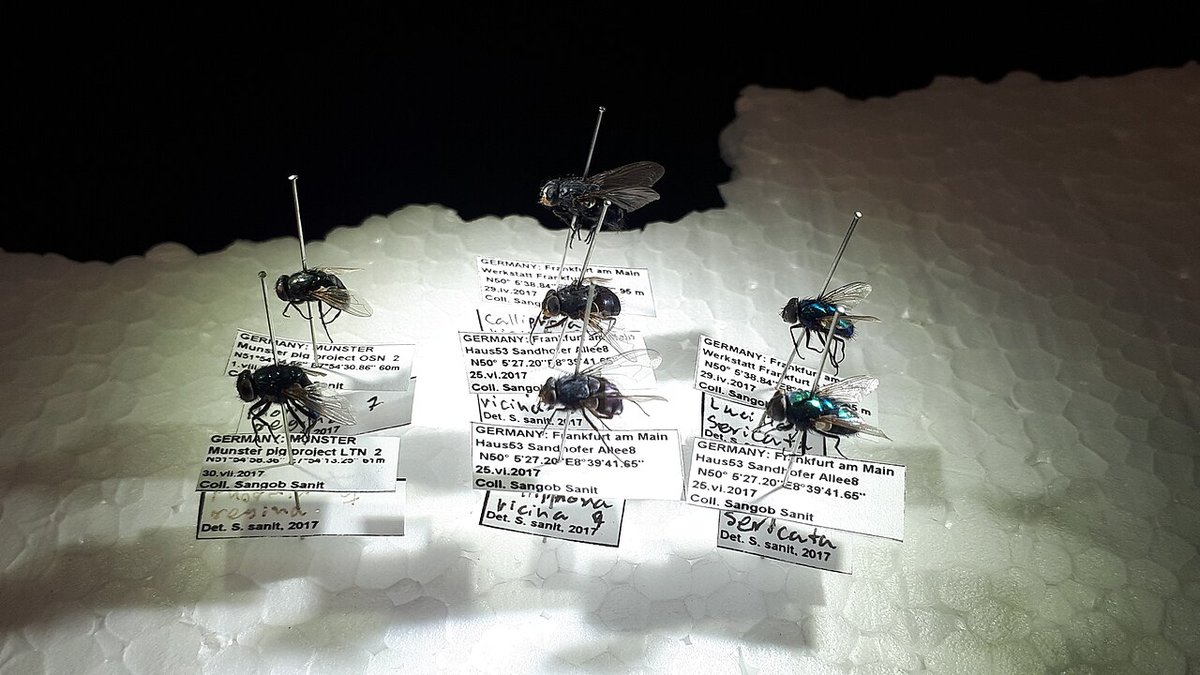 GERMANY: Frankfurt am Main
Werkstatt Frankfurt
N50° 5'38.84" 95 m
29.iv.2017
Coll. Sangob
Calliphora
GERMANY: Frankfurt am Main
Haus53 Sandhofer Allee8
N50° 5'27.20"E8°39'41.65"
25.vi.2017
Coll. Sangob Sanit
vicina
Det. S. sanit, 2017
GERMANY: Frankfurt am Main
Haus53 Sandhofer Allee8
N50° 5'27.20"E8°39'41.65"
25.vi.2017
Coll. Sangob Sanit
vicina ♀
Det. S. sanit, 2017
GERMANY: MUNSTER
Munster pig project OSN 2
60m
2017
GERMANY: MUNSTER
Munster pig project LTN 2
30.vii.2017
Coll. Sangob Sanit
regina
Det. S. sanit, 2017
GERMANY: Frankfurt am
Werkstatt Frankfurt
N50° 5'38.84"
29.iv.2017
Coll. Sangob
sericata
Det. S.
GERMANY: Frankfurt am Main
Haus53 Sandhofer Allee8
N50° 5'27.20"E8°39'41.65"
25.vi.2017
Coll. Sangob Sanit
sericata
Det. S. sanit, 2017